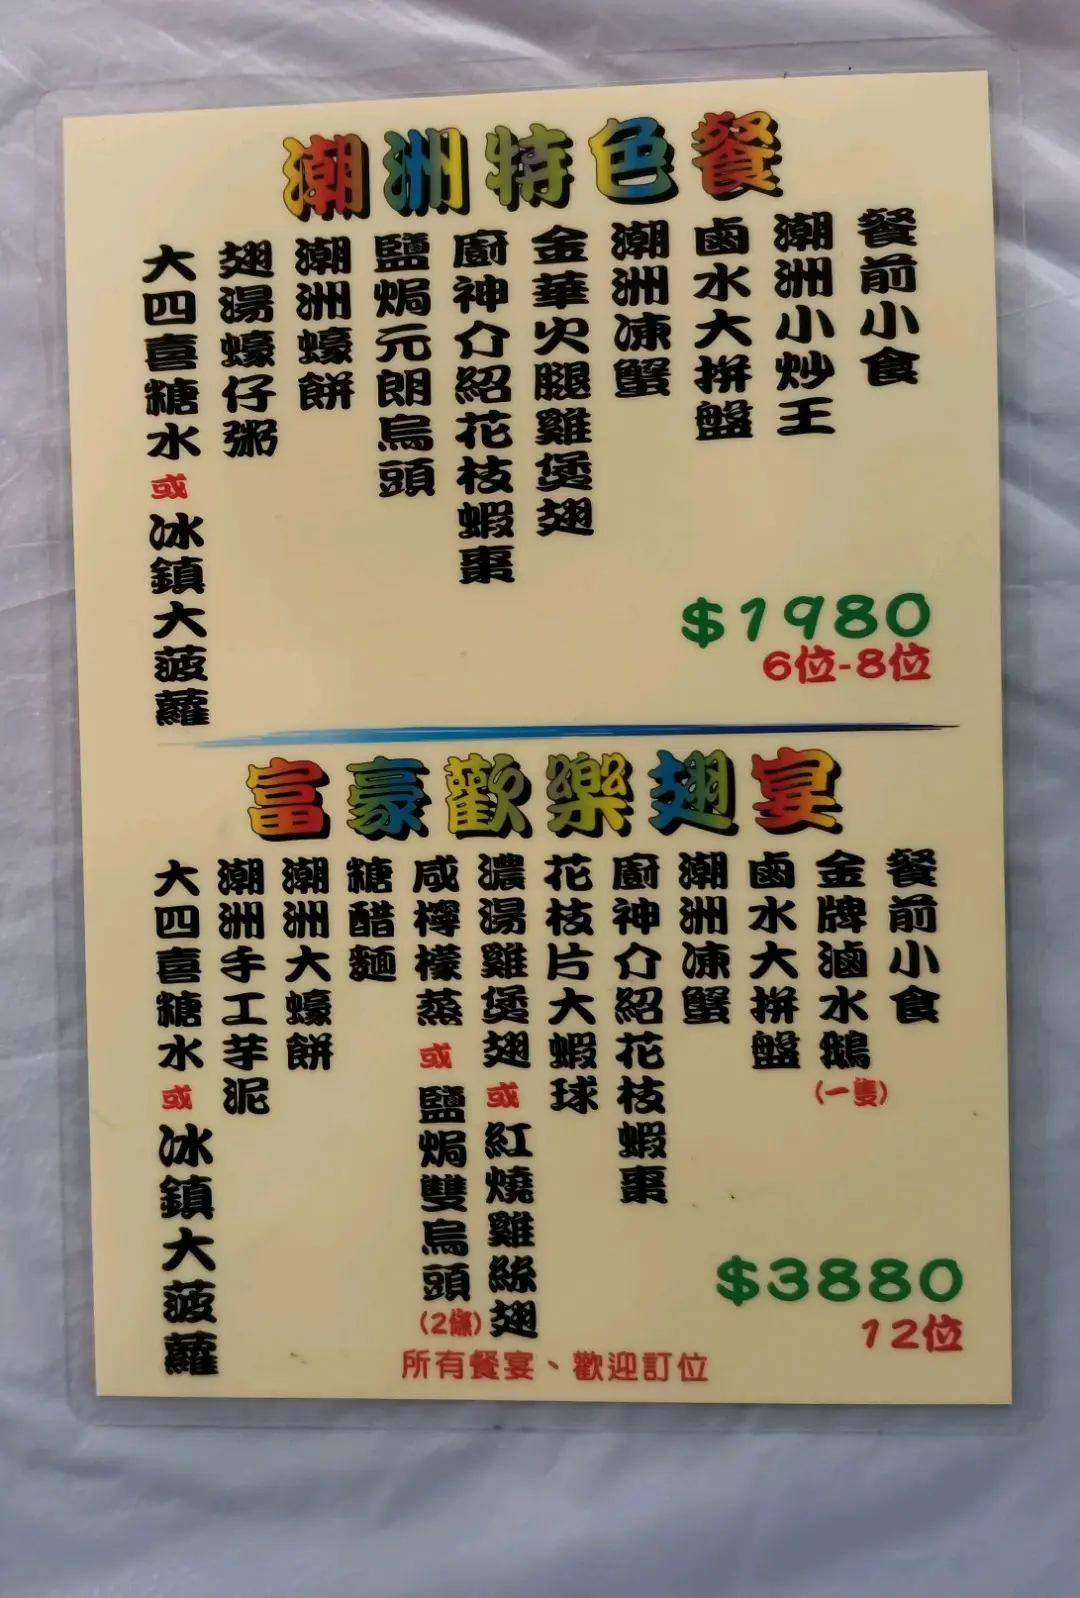 潮洲特色餐
餐前小食
潮洲小炒王
鹵水大拼盤
潮洲凍蟹
金華火腿雞煲翅
廚神介紹花枝蝦棗
鹽焗元朗烏頭
潮洲蠔餅
翅湯蠔仔粥
大四喜糖水或冰鎮大菠蘿
$1980
6位-8位
富豪歡樂翅宴
餐前小食
金牌滷水鵝(一隻)
鹵水大拼盤
潮洲凍蟹
廚神介紹花枝蝦棗
花枝片大蝦球
濃湯雞煲翅或紅燒雞絲翅
咸檸檬蒸或鹽焗雙烏頭(2條)
糖醋麵
潮洲大蠔餅
潮洲手工芋泥
大四喜糖水或冰鎮大菠蘿
$3880
12位
所有餐宴、歡迎訂位